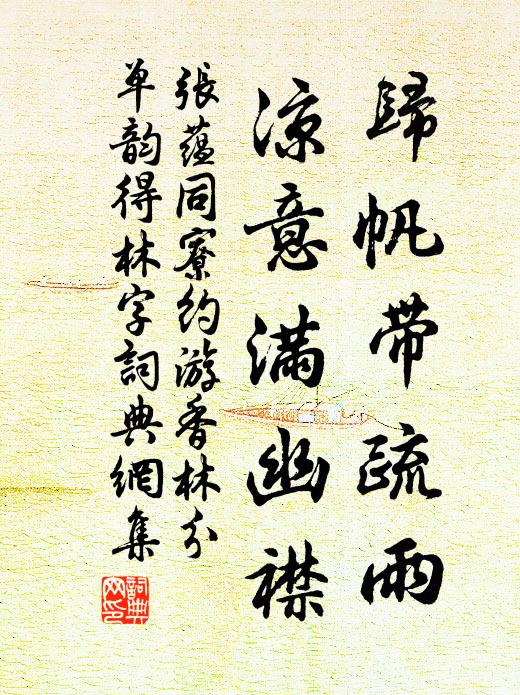 歸帆帶疏雨
涼意滿幽襟
張蘊同寮約游香林分
单韵得林字詞典網集
詞典网印